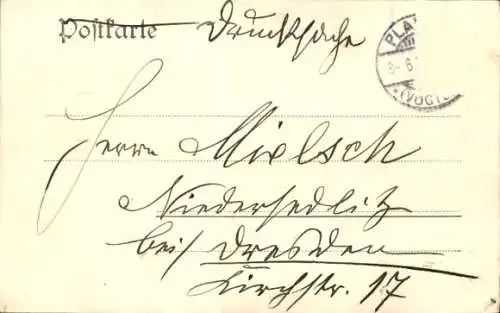 Postkarte Drucksache
PLA
8-6
*(VOGTL
Herrn Mielsch
Niedersedlitz
bei/ Dresden
Kirchstr. 17